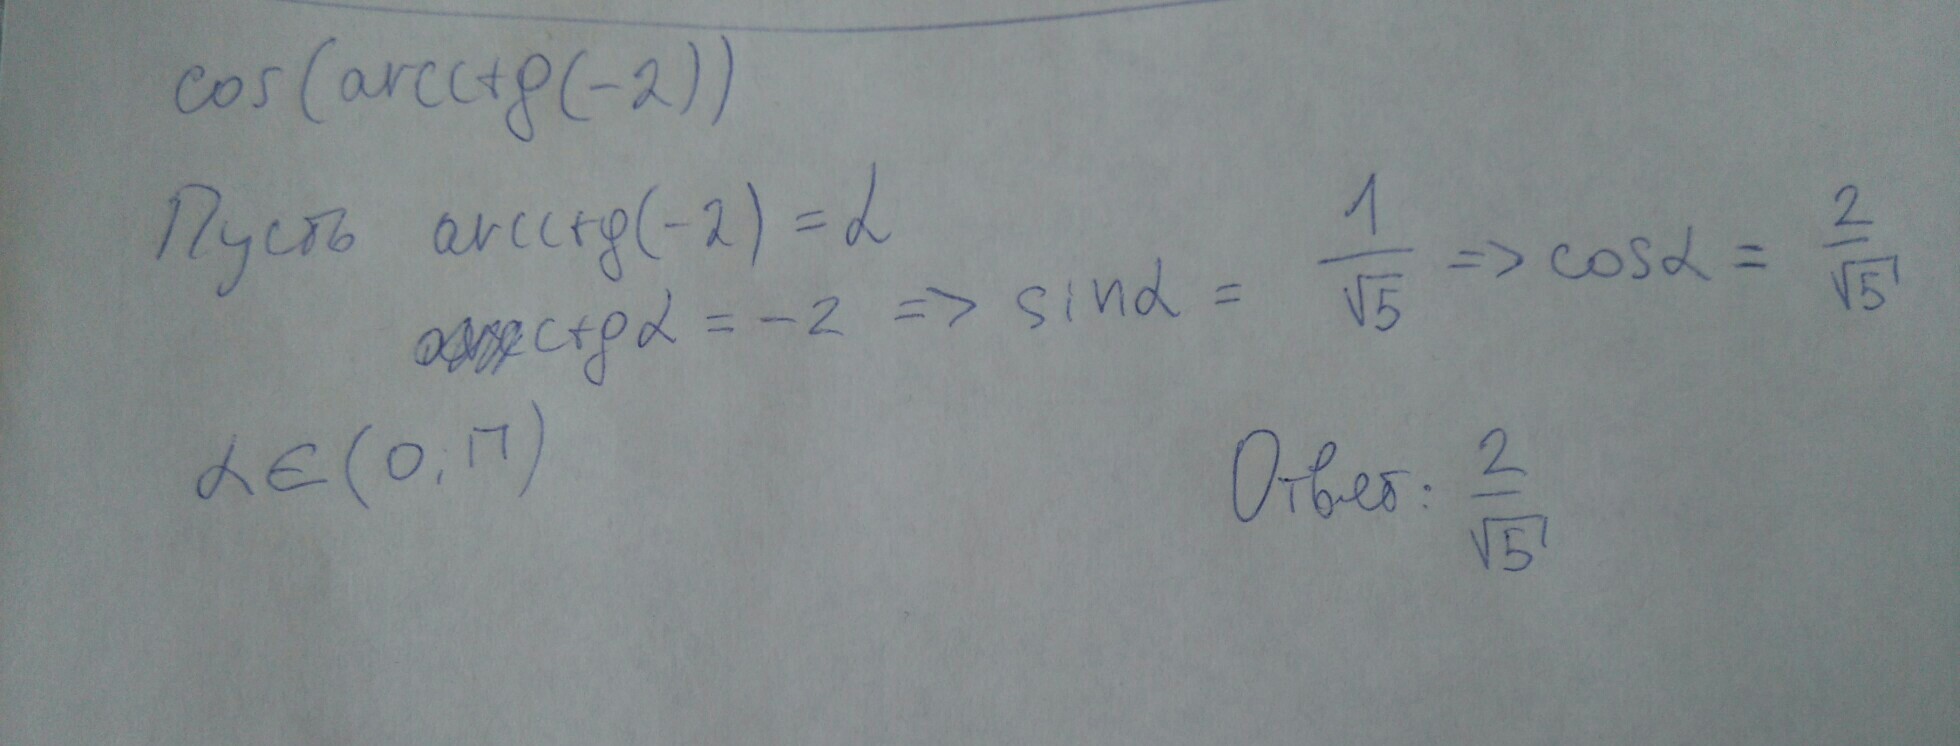 cos(arcctg(-2))
Пусть arcctg(-2) = α
ctgα = -2 => sinα = 1/√5 => cosα = 2/√5
α∈(0;П)
Ответ: 2/√5